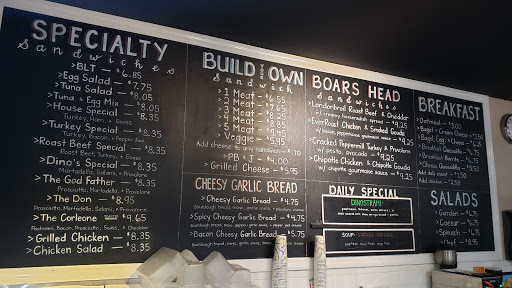 SPECIALTY
sandwiches
>BLT — $6.85
>Egg Salad — $7.75
>Tuna Salad — $8.05
>Tuna & Egg Mix — $8.05
>House Special — $8.35
Turkey, Ham, & Swiss
>Turkey Special — $8.35
>Roast Beef Special — $8.35
Roast Beef, Turkey, & Swiss
>Dino's Special — $8.35
Mortadella, Salami, & Provolone
>The God Father — $8.35
Prosciutto, Mortadella, & Provolone
>The Don — $8.95
Prosciutto, Mortadella, Salami, & Provolone
>The Corleone — $9.65
Pastrami, Bacon, Prosciutto, Swiss, & Cheddar
>Grilled Chicken — $8.35
>Chicken Salad — $8.35
BUILD YOUR OWN
Sandwich
>1 Meat — $6.55
>2 Meat — $7.65
>3 Meat — $8.25
>4 Meat — $8.95
>5 Meat — $9.45
>Veggie — $5.95
Add cheese to any sandwich — $.70
>PB & J — $4.00
>Grilled Cheese — $5.95
CHEESY GARLIC BREAD
>Cheesy Garlic Bread — $4.75
>Spicy Cheesy Garlic Bread — $4.75
>Bacon Cheesy Garlic Bread — $5.75
BOARS HEAD
sandwiches
>Londonbroil Roast Beef & Cheddar
w/ creamy horseradish spread — $9.25
>EverRoast Chicken & Smoked Gouda
w/ bacon, pepperhouse gourmaise — $9.25
>Cracked Peppermill Turkey & Provolone
w/ pesto, avocado — $9.25
>Chipotle Chicken & Chipotle Gouda
w/ chipotle gourmaise sauce — $9.25
DAILY SPECIAL
DINOSTRAMI
SOUP
BREAKFAST
>Oatmeal
>Bagel
>Bagel & Cream Cheese
>Bagel, Egg & Cheese
>Breakfast Burrito
>Breakfast Quesadilla
Add deli meat
Add chicken — $2.50
SALADS
>Garden — $6.75
>Caesar — $6.75
>Spinach — $6.75
>Chef — $8.95